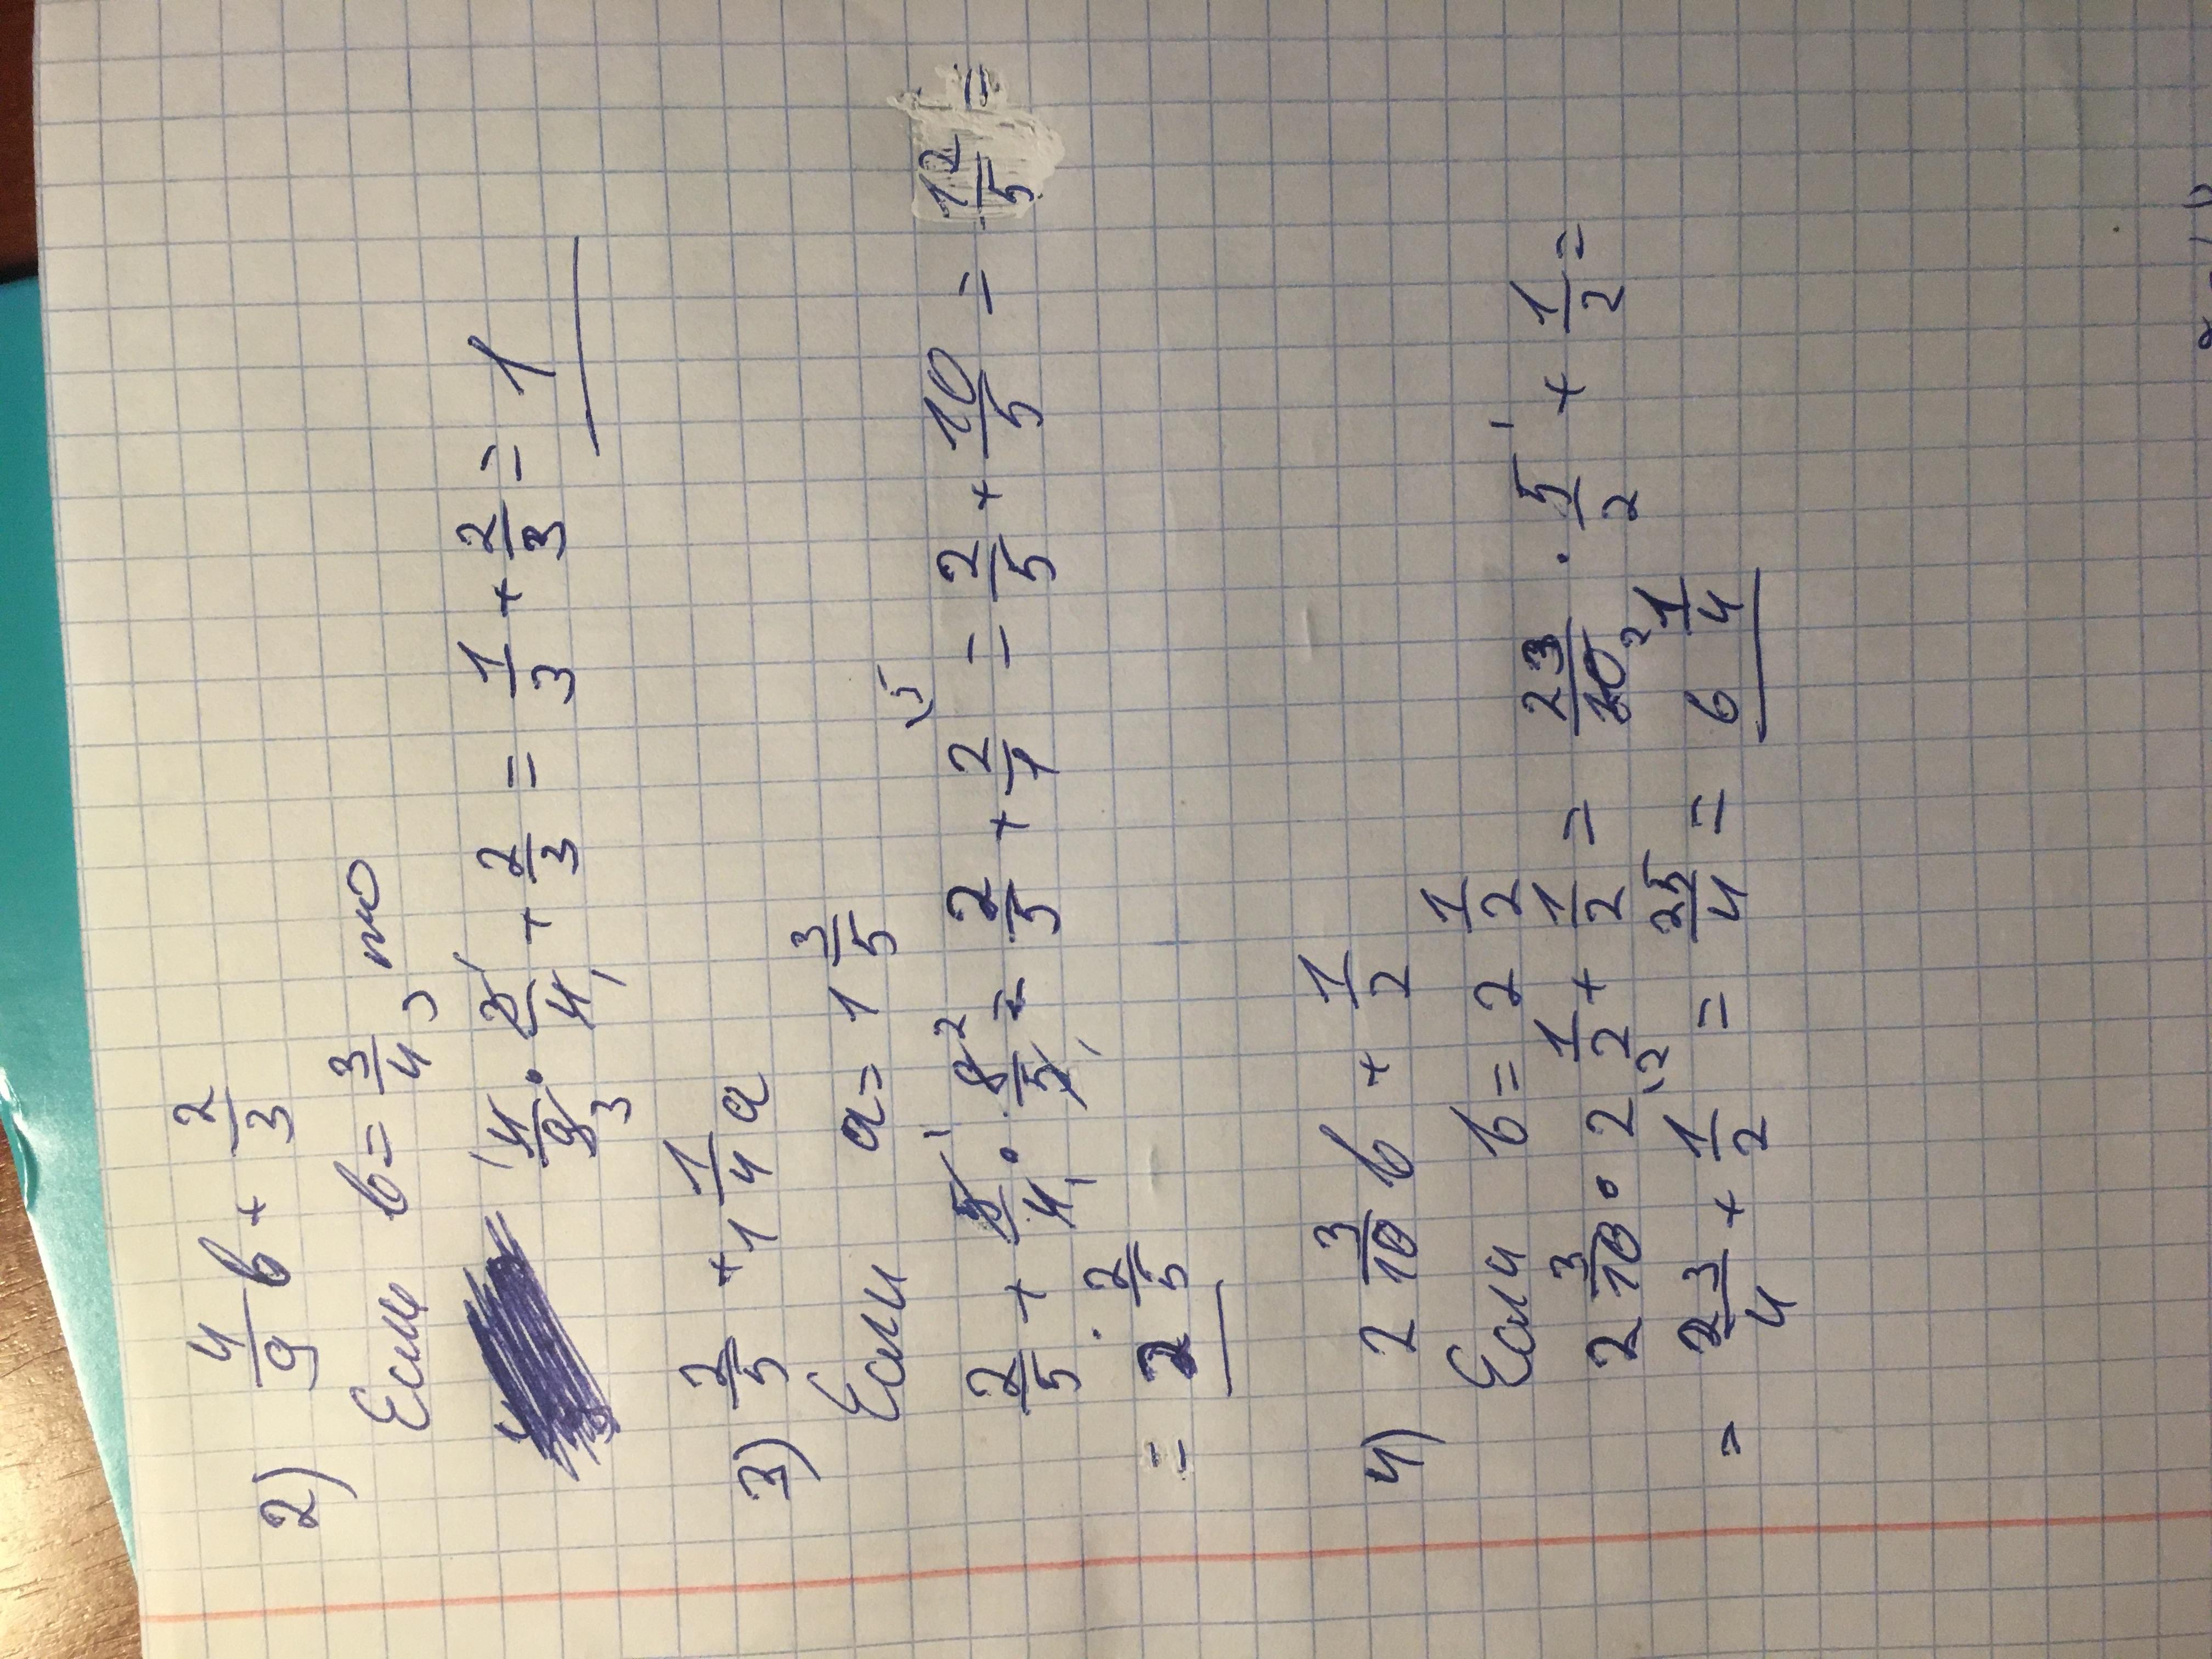 2) 4/9 b + 2/3
Если b = 3/4, то
4/9 · 3/4 + 2/3 = 1/3 + 2/3 = 1
3) 2/5 + 1 1/4 a
Если a = 1 3/5
2/5 + 5/4 · 8/5 = 2/5 + 2/1 = 2/5 + 10/5 = 12/5 =
= 2 2/5
4) 2 3/10 b + 1/2
Если b = 2 1/2
2 3/10 · 2 1/2 + 1/2 = 23/10 · 5/2 + 1/2 =
= 23/4 + 1/2 = 25/4 = 6 1/4